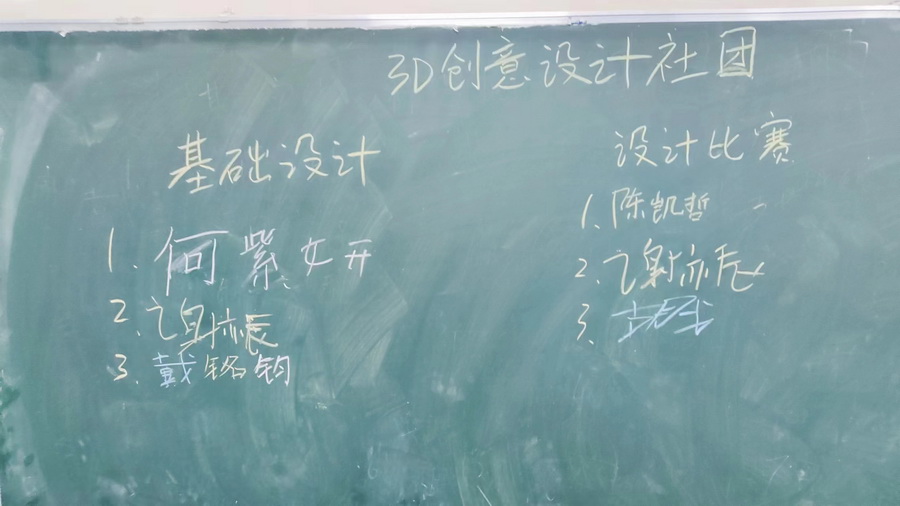 3D创意设计社团
基础设计
1. 何紫妍
2. 谢亦辰
3. 戴铭钧
设计比赛
1. 陈凯哲
2. 谢亦辰
3.